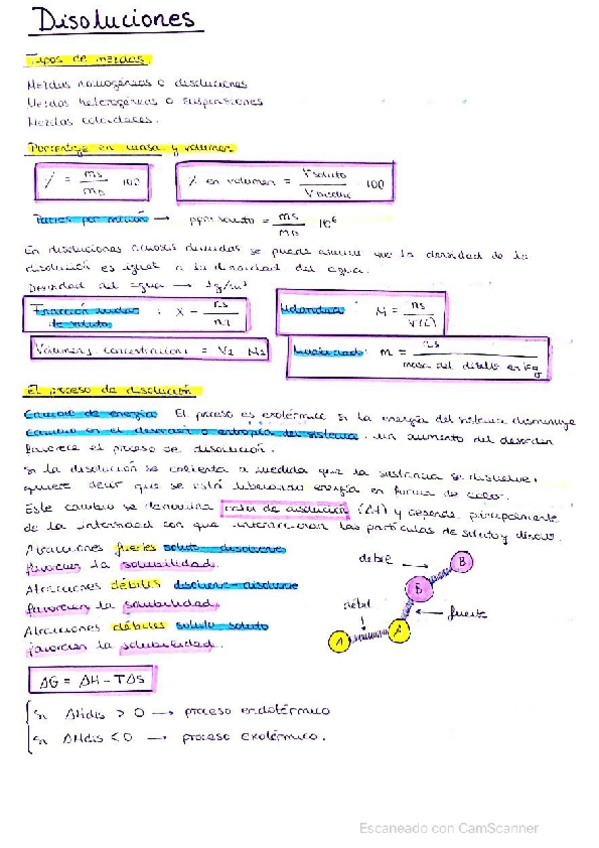 Disoluciones
Tipos de mezclas
Mezclas homogéneas o disoluciones
Mezclas heterogéneas o suspensiones
Mezclas coloidales.
Porcentaje en masa y volumen
% = ms / mD · 100
% en volumen = Vsoluto / Vdisoluc · 100
Partes por millón → ppm soluto = ms / mD 10⁶
En disoluciones acuosas diluidas se puede asumir que la densidad de la
disolución es igual a la densidad del agua.
Densidad del agua → 1g/cm³
Fracción molar de soluto : X = ns / nT
Molaridad : M = ns / V(L)
Volumen y concentración = V₂ M₂
Molalidad : m = ns / masa del disolv en Kg
El proceso de disolución
Cambio de energía El proceso es exotérmico si la energía del sistema disminuye
Cambio en el desorden o entropía del sistema. un aumento del desorden
favorece el proceso de disolución.
Si la disolución se calienta a medida que la sustancia se disuelve,
quiere decir que se está liberando energía en forma de calor.
Este cambio se denomina calor de disolución (ΔH) y depende principalmente
de la intensidad con que interaccionan las partículas de soluto y disolv.
Atracciones fuertes soluto disolvente
favorecen la solubilidad.
Atracciones débiles disolvente-disolvente
favorecen la solubilidad.
Atracciones débiles soluto soluto
favorecen la solubilidad.
débil
B
B
débil
fuerte
A
A
ΔG = ΔH - TΔS
Si ΔHdis > 0 → proceso endotérmico
Si ΔHdis < 0 → proceso exotérmico.
Escaneado con CamScanner